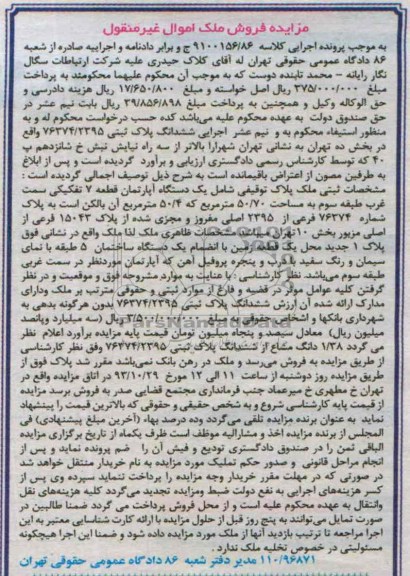 مزایده فروش ملک اموال غیرمنقول
به موجب پرونده اجرایی کلاسه ۹۱۰۰۱۵۶/۸۶ ج و برابر دادنامه و اجراییه صادره از شعبه
۸۶ دادگاه عمومی حقوقی تهران له آقای کلاک حیدری علیه شرکت ارتباطات سگال
نگار رایانه - محمد تابنده دوست که به موجب آن محکوم علیهما محکومند به پرداخت
مبلغ ۳۷۵/۰۰۰/۰۰۰ ریال اصل خواسته و مبلغ ۱۷/۶۵۰/۸۰۰ ریال هزینه دادرسی و
حق الوکاله وکیل و همچنین به پرداخت مبلغ ۳۹/۸۵۶/۸۹۸ ریال بابت نیم عشر در
حق صندوق دولت به عهده محکوم علیه می‌باشد کده حسب درخواست محکوم له و به
منظور استیفاء محکوم به و نیم عشر اجرایی ششدانگ پلاک ثبتی ۷۶۳۷۴/۲۳۹۵ واقع
در بخش ده تهران به نشانی تهران شهرآرا بالاتر از سه راه نیایش نبش خ شانزدهم پ
۴۰ که توسط کارشناس رسمی دادگستری ارزیابی و برآورد گردیده است و پس از ابلاغ
به طرفین مصون از اعتراض باقیمانده است به شرح ذیل توصیف اجمالی گردیده است :
مشخصات ثبتی ملک پلاک توقیفی شامل یک دستگاه آپارتمان قطعه ۷ تفکیکی سمت
غرب طبقه سوم به مساحت ۵۰/۷۰ مترمربع که ۵۰/۴ مترمربع آن بالکن است به پلاک
شماره ۷۶۳۷۴ فرعی از ۲۳۹۵ اصلی مفروز و مجزی شده از پلاک ۱۵۰۴۳ فرعی از
اصلی مزبور بخش ۱۰ تهران میباشد مشخصات ظاهری ملک لذا ملک واقع در نشانی فوق
پلاک ۱ جدید محل یک قطعه زمین با انضمام یک دستگاه ساختمان ۵ طبقه با نمای
سیمان و رنگ سفید با درب و پنجره پروفیل آهن که آپارتمان موردنظر در سمت غربی
طبقه سوم می‌باشد. نظر کارشناسی : با عنایت به موارد مشروحه فوق و موقعیت و در نظر
گرفتن کلیه عوامل موثر در قضیه و فارغ از موارد ثبتی و حقوقی مترتب بر ملک ودارای
مدارک ارائه شده آن ارزش ششدانگ پلاک ثبتی ۷۶۳۷۴/۲۳۹۵ بدون هرگونه بدهی به
شهرداری بانکها و اشخاص حقوقی به مبلغ ۳/۵۰۰/۰۰۰/۰۰۰ ریال (سه میلیارد وپانصد
میلیون ریال) معادل سیصد و پنجاه میلیون تومان قیمت پایه مزایده برآورد اعلام نظر
می گردد ۱/۳۸ دانگ مشاع از ششدانگ پلاک ثبتی ۷۶۳۷۴/۲۳۹۵ وفق نظر کارشناسی
از طریق مزایده به فروش می‌رسد و ملک در رهن بانک نمی‌باشد مقرر شد پلاک فوق از
طریق مزایده روز دوشنبه از ساعت ۱۱ الی ۱۲ مورخ ۹۳/۱۰/۲۹ در اتاق مزایده واقع در
تهران خ مطهری خ میرعماد جنب فرمانداری مجتمع قضایی صدر به فروش برسد مزایده
از قیمت پایه کارشناسی شروع و به شخص حقیقی و حقوقی که بالاترین قیمت را پیشنهاد
نماید به عنوان برنده مزایده تلقی می‌گردد وده درصد بهاء (آخرین مبلغ پیشنهادی) فی
المجلس از برنده مزایده اخذ و مشارالیه موظف است ظرف یکماه از تاریخ برگزاری مزایده
الباقی ثمن را در صندوق دادگستری تودیع و فیش آن را ضم پرونده نماید و پس از
انجام مراحل قانونی و صدور حکم تملیک مورد مزایده به نام خریدار منتقل خواهد شد
در صورتی که در مهلت مقرر خریدار وجه مزایده را پرداخت ننماید سپرده وی پس از
کسر هزینه‌های اجرایی به نفع دولت ضبط ومزایده تجدید می‌گردد کلیه هزینه‌های نقل
وانتقال به عهده محکوم علیه است و از محل فروش پرداخت می گردد ضمنا طالبین در
صورت تمایل می‌توانند به پنج روز قبل از حلول مزایده با ارائه کارت شناسایی معتبر به این
اجرا مراجعه تا ترتیب بازدید آنها از ملک مورد مزایده داده شود و ضمنا این اجرا هیچگونه
مسئولیتی در خصوص تخلیه ملک ندارد.
۱۱۰/۹۶۸۷۱ مدیر دفتر شعبه ۸۶ دادگاه عمومی حقوقی تهران